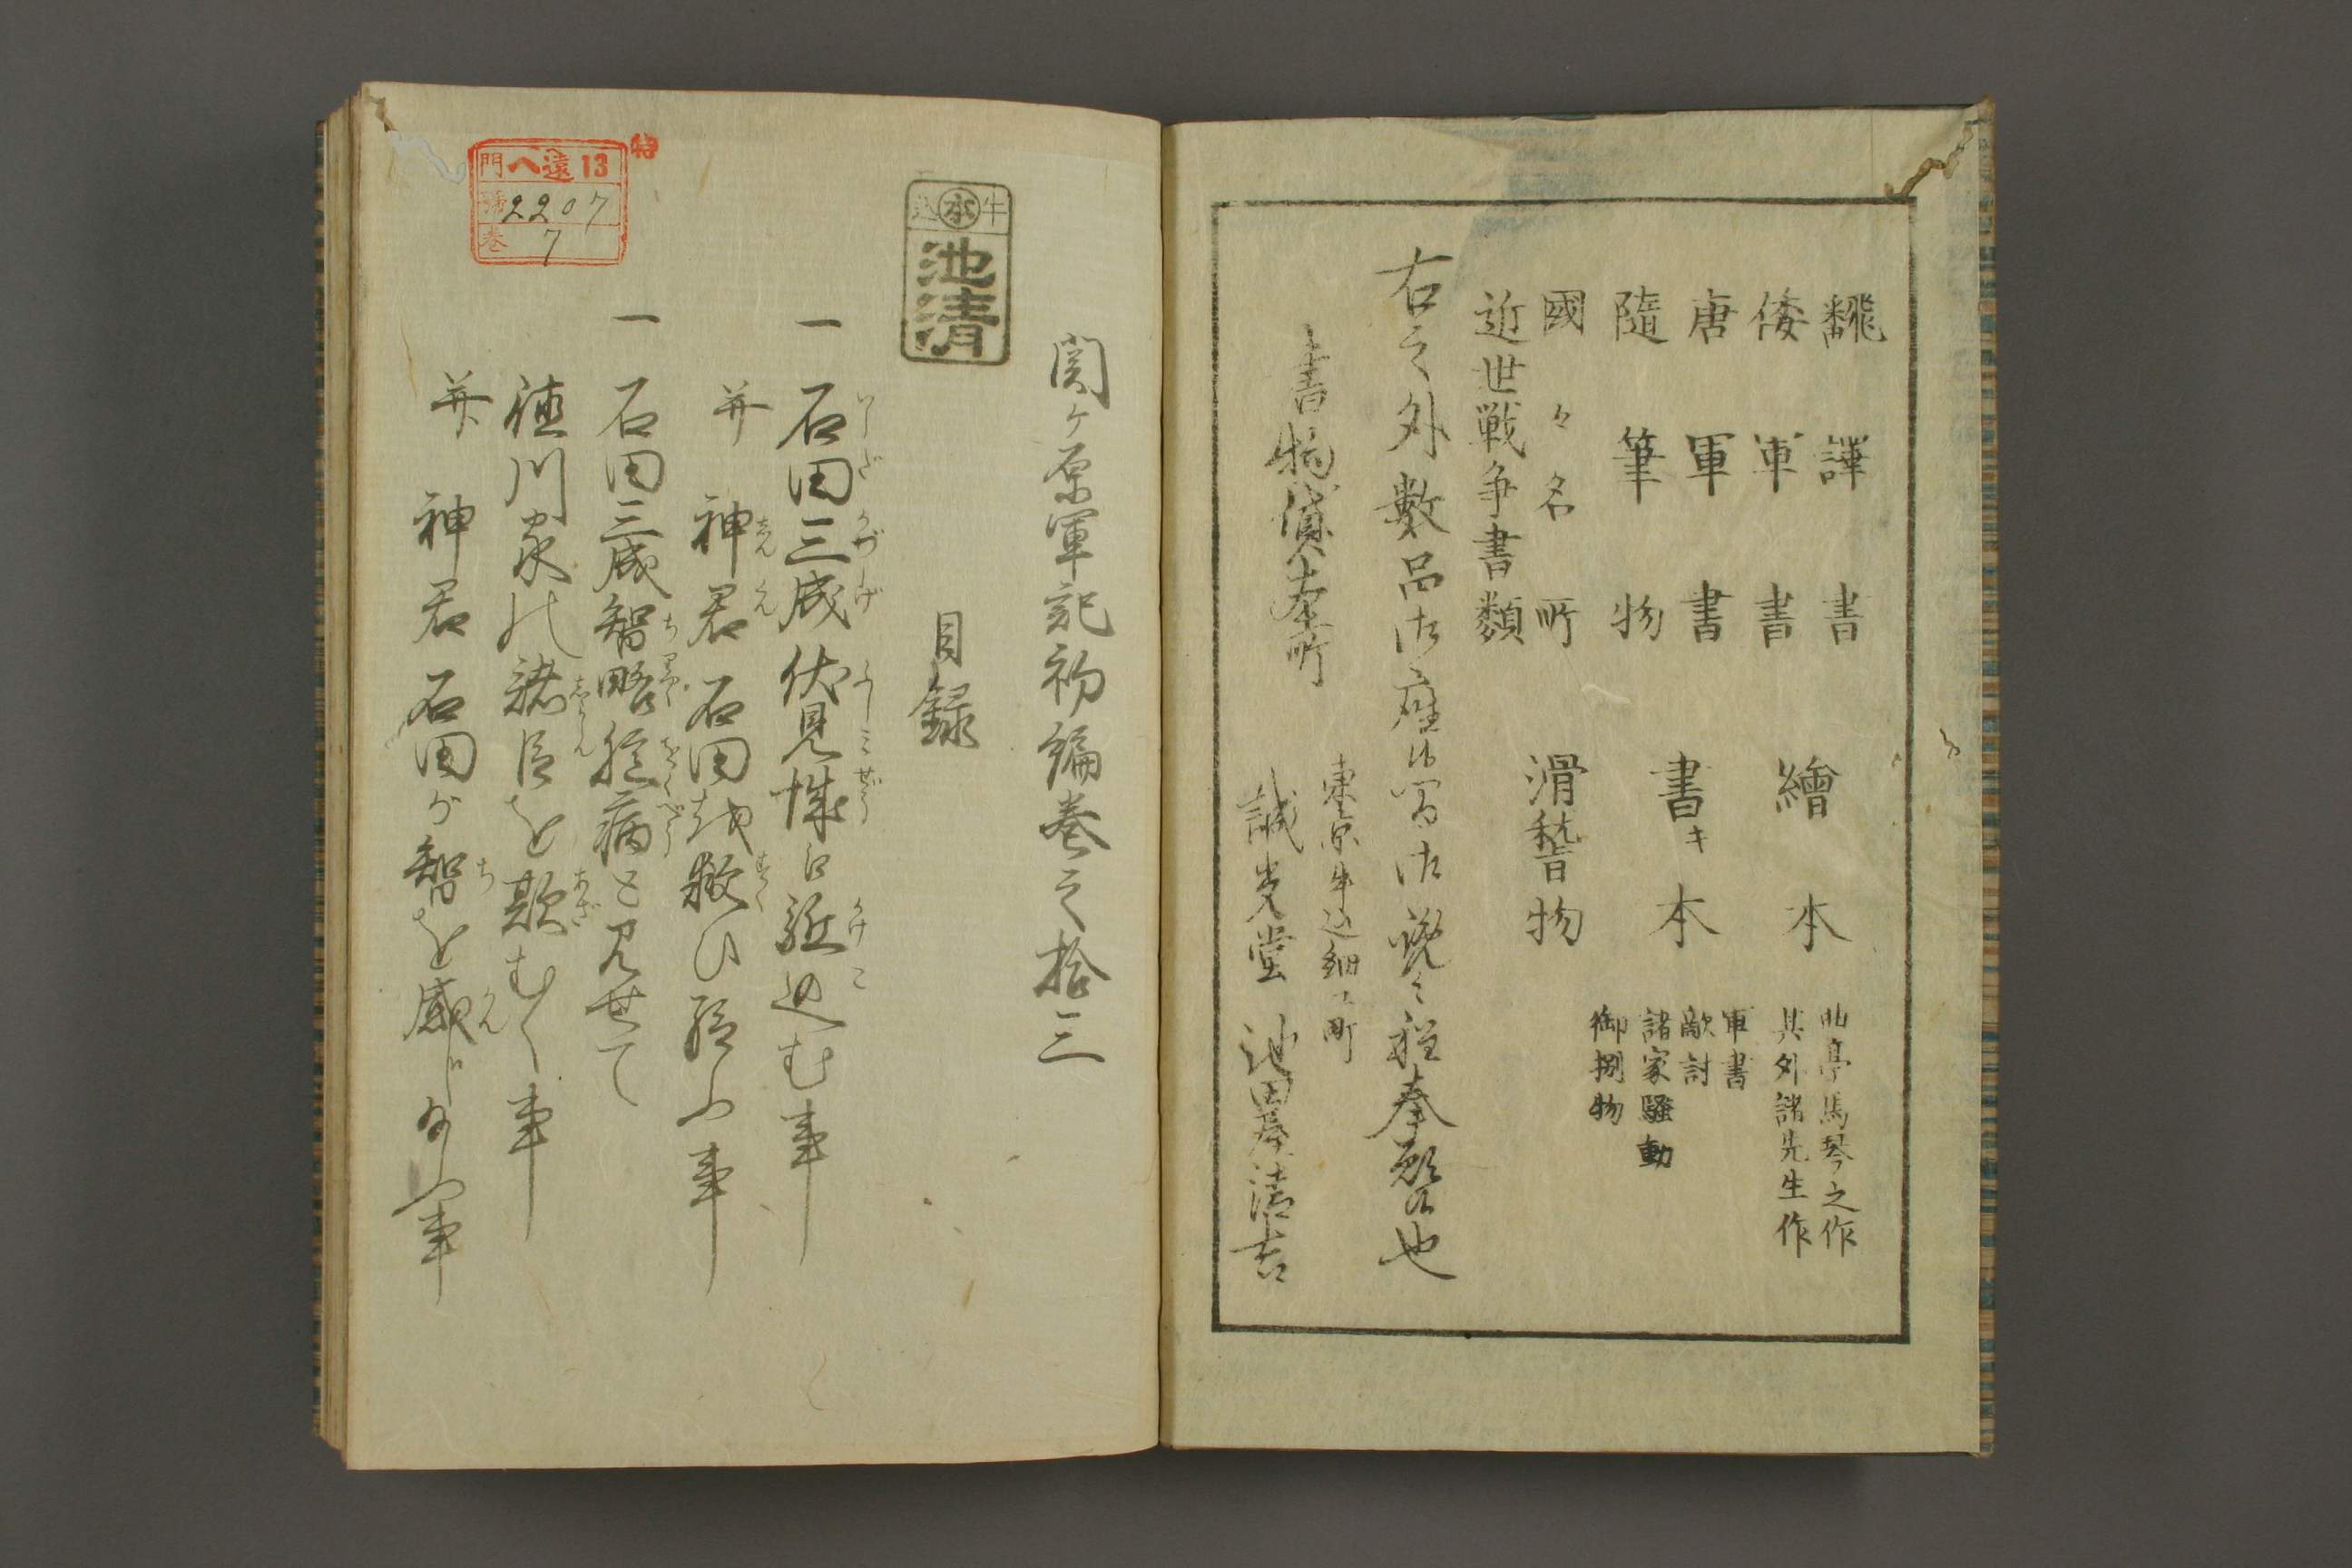 飜譯書
倭軍書
唐軍書
隨筆物
國々名所
近世戦争書類
繪本
書キ本
滑稽物
曲亭馬琴之作
其外諸先生作
軍書
敵討
諸家騒動
御捌物
右之外數品御座候間御覧之程奉願候也
書物貸本所
東京牛込細工町
誠光堂 池田屋清吉
関ヶ原軍記初編巻之拾三
目録
牛込
本
池清
一 石田三成伏見城江逃込む事
并 神君石田を救ひ給ふ事
一 石田三成智略臆病と見せて
徳川家の諸臣を欺むく事
并 神君石田が智を感じ給ふ事
特
門 ヘ遠13
號 2207
巻 7